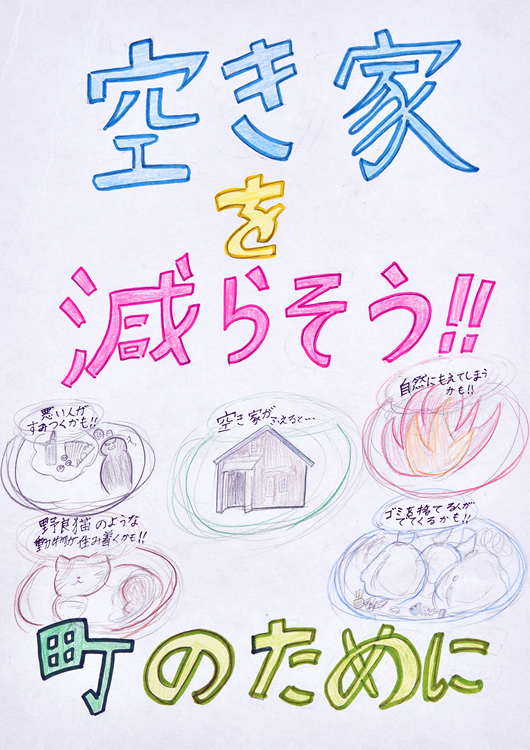 空き家
を
減らそう!!
空き家がふえると…
悪い人が
すみつくかも!!
自然にもえてしまう
かも!!
野良猫のような
動物が住み着くかも!!
ゴミを捨てる人が
でてくるかも!!
町のために